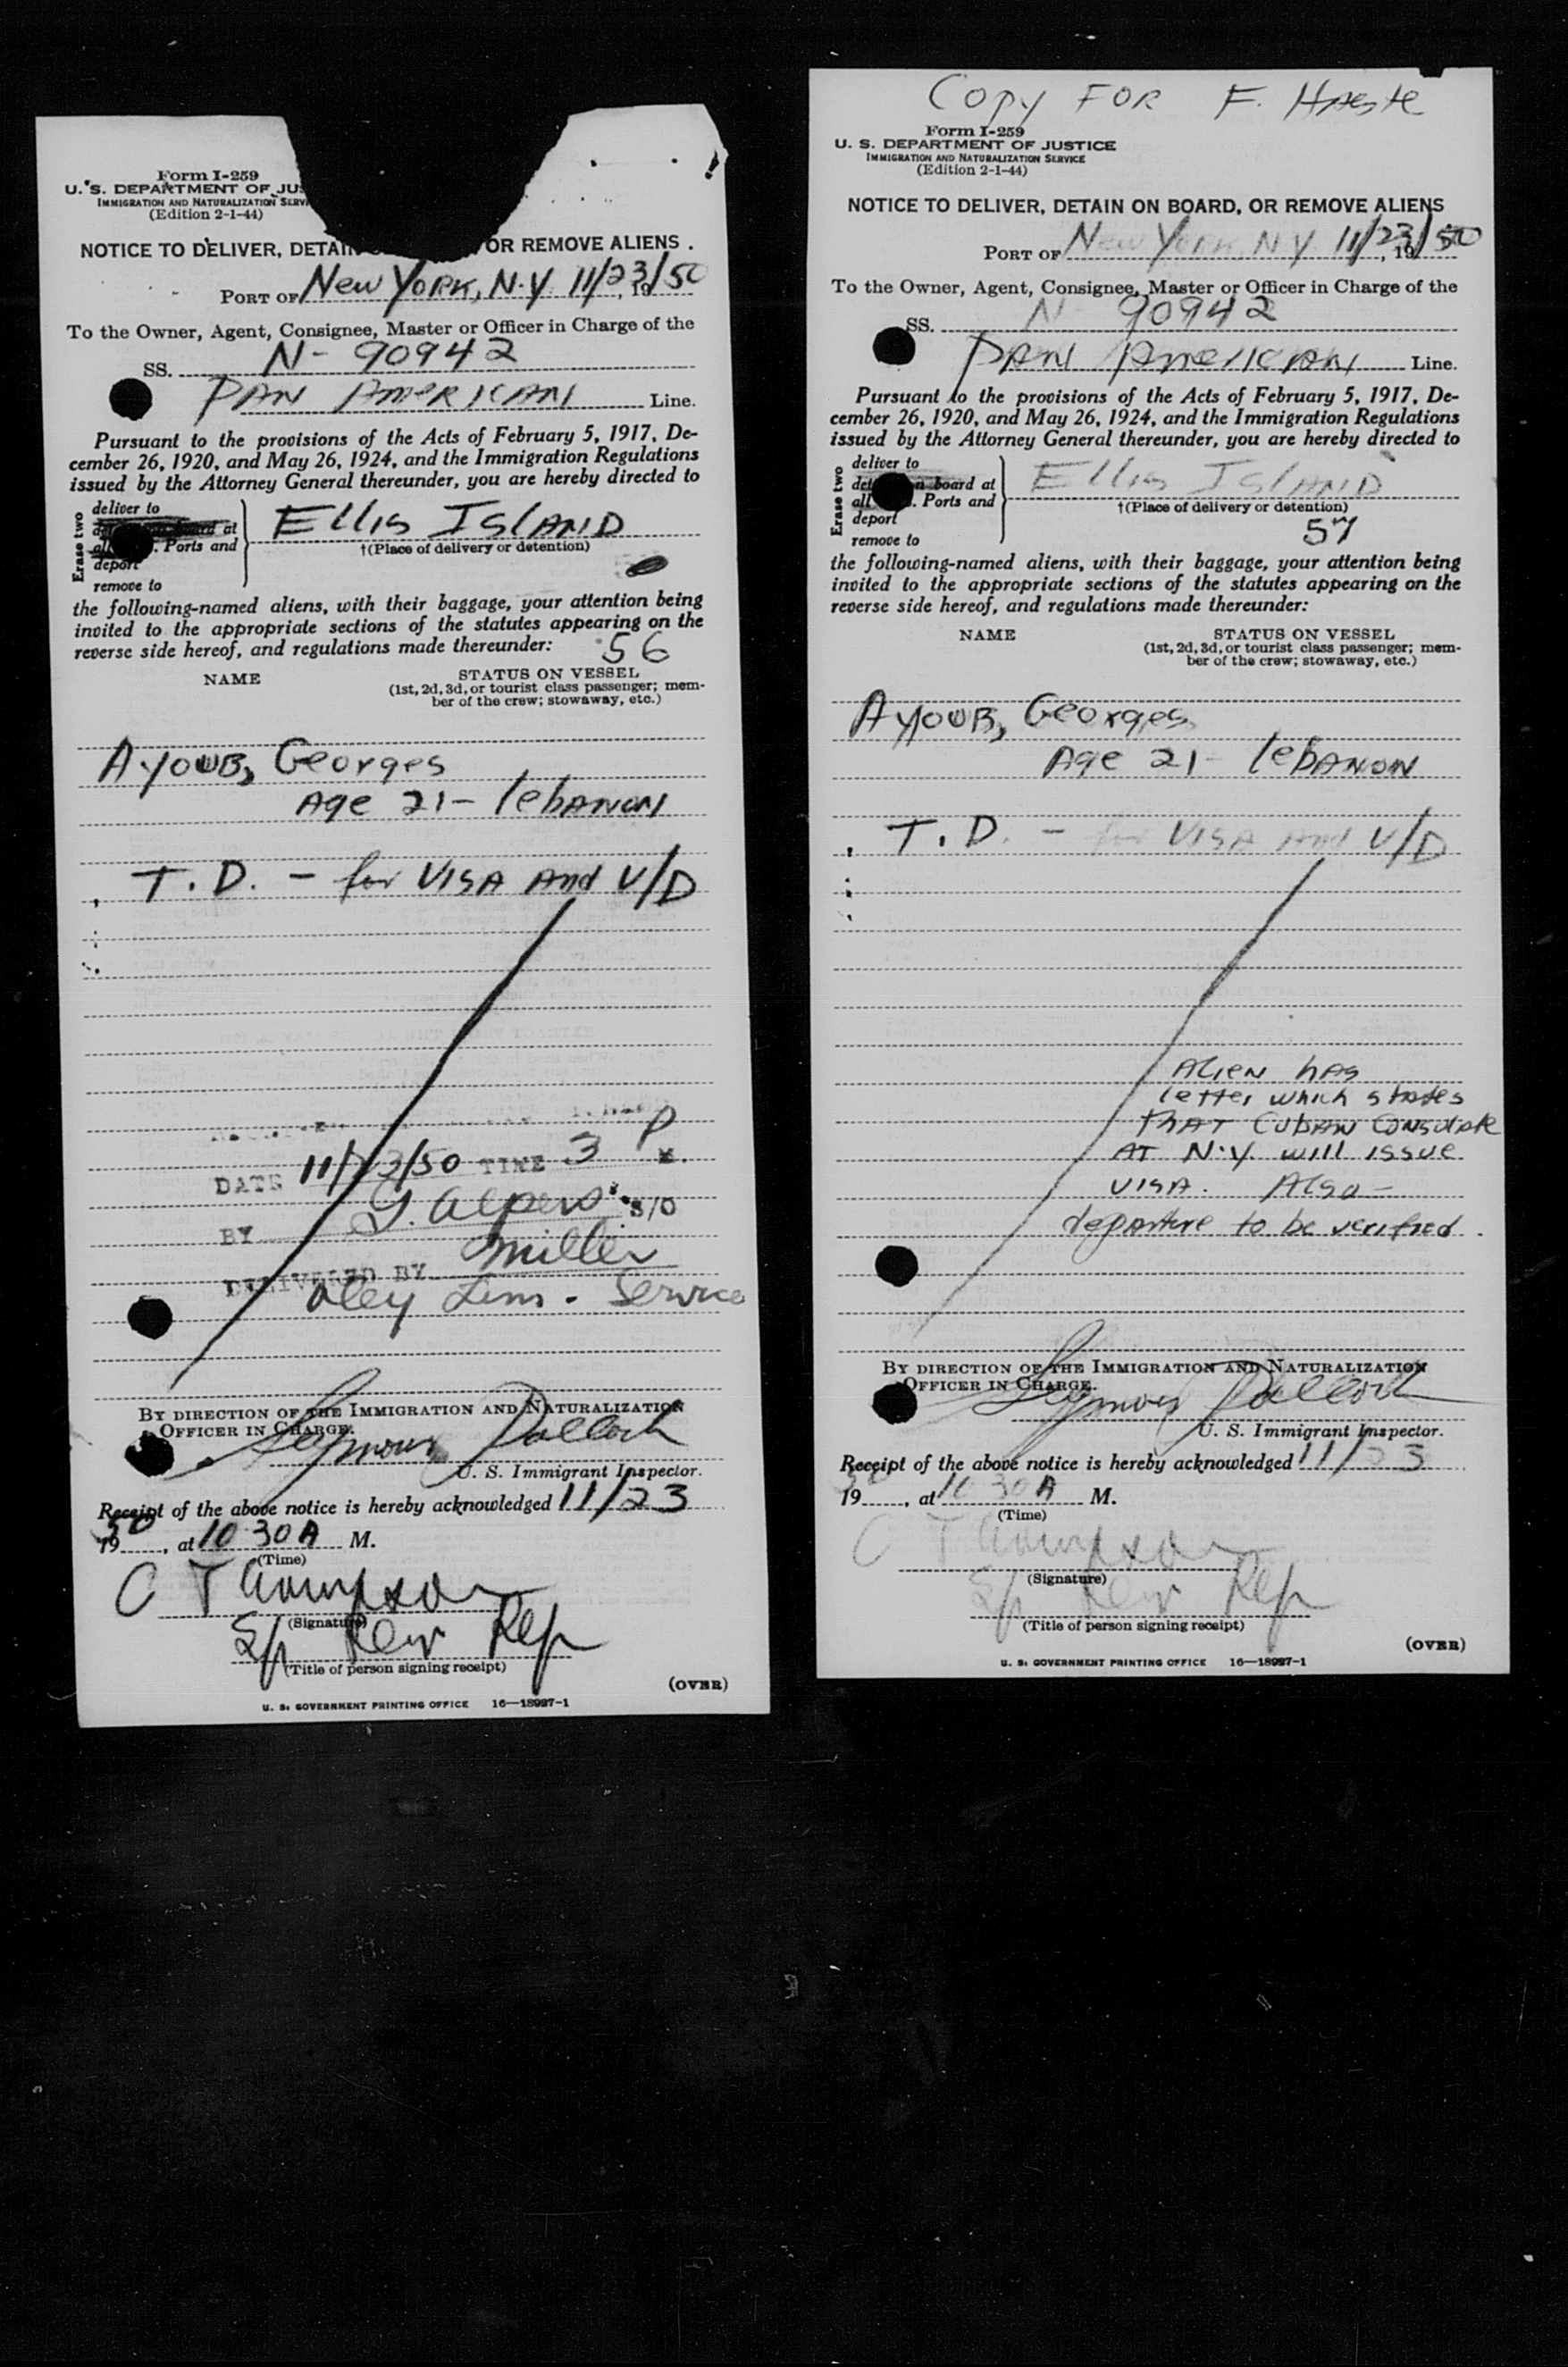 Form I-259
U. S. DEPARTMENT OF JUS
IMMIGRATION AND NATURALIZATION SERV
(Edition 2-1-44)
NOTICE TO DELIVER, DETAIN OR REMOVE ALIENS.
PORT OF New York, N.Y. 11/23/50, 19
To the Owner, Agent, Consignee, Master or Officer in Charge of the
SS. N- 90942
PAN AMERICAN Line.
Pursuant to the provisions of the Acts of February 5, 1917, De-
cember 26, 1920, and May 26, 1924, and the Immigration Regulations
issued by the Attorney General thereunder, you are hereby directed to
Erase two
deliver to
at
all . Ports and
deport
remove to
Ellis Island
†(Place of delivery or detention)
the following-named aliens, with their baggage, your attention being
invited to the appropriate sections of the statutes appearing on the
reverse side hereof, and regulations made thereunder: 56
NAME STATUS ON VESSEL
(1st, 2d, 3d, or tourist class passenger; mem-
ber of the crew; stowaway, etc.)
Ayoub, Georges
Age 21 - lebanon
T.D. - for VISA and V/D
P
DATE 11/23/50 TIME 3 M.
BY Alpers S/O
DELIVERED BY Miller
Service
BY DIRECTION OF THE IMMIGRATION AND NATURALIZATION
OFFICER IN CHARGE.
Seymour Pollock
U. S. Immigrant Inspector.
Receipt of the above notice is hereby acknowledged 11/23
19 50, at 10 30 A M.
(Time)
C Thompson
(Signature)
Rep
(Title of person signing receipt)
(OVER)
U. S. GOVERNMENT PRINTING OFFICE 16—18997-1
Copy FOR F. Haste
Form I-259
U. S. DEPARTMENT OF JUSTICE
IMMIGRATION AND NATURALIZATION SERVICE
(Edition 2-1-44)
NOTICE TO DELIVER, DETAIN ON BOARD, OR REMOVE ALIENS
PORT OF New York, N.Y. 11/23/50, 19
To the Owner, Agent, Consignee, Master or Officer in Charge of the
SS. N- 90942
PAN AMERICAN Line.
Pursuant to the provisions of the Acts of February 5, 1917, De-
cember 26, 1920, and May 26, 1924, and the Immigration Regulations
issued by the Attorney General thereunder, you are hereby directed to
Erase two
deliver to
det n board at
all . Ports and
deport
remove to
Ellis Island
†(Place of delivery or detention)
57
the following-named aliens, with their baggage, your attention being
invited to the appropriate sections of the statutes appearing on the
reverse side hereof, and regulations made thereunder:
NAME STATUS ON VESSEL
(1st, 2d, 3d, or tourist class passenger; mem-
ber of the crew; stowaway, etc.)
Ayoub, Georges
Age 21 - lebanon
T.D. - for VISA and V/D
Alien has
letter which states
that Cuban Consulate
at N.Y. will issue
visa. Also -
departure to be verified.
BY DIRECTION OF THE IMMIGRATION AND NATURALIZATION
OFFICER IN CHARGE.
Seymour Pollock
U. S. Immigrant Inspector.
Receipt of the above notice is hereby acknowledged 11/23
19 50, at 10 30 A M.
(Time)
C Thompson
(Signature)
Rep
(Title of person signing receipt)
(OVER)
U. S. GOVERNMENT PRINTING OFFICE 16—18997-1